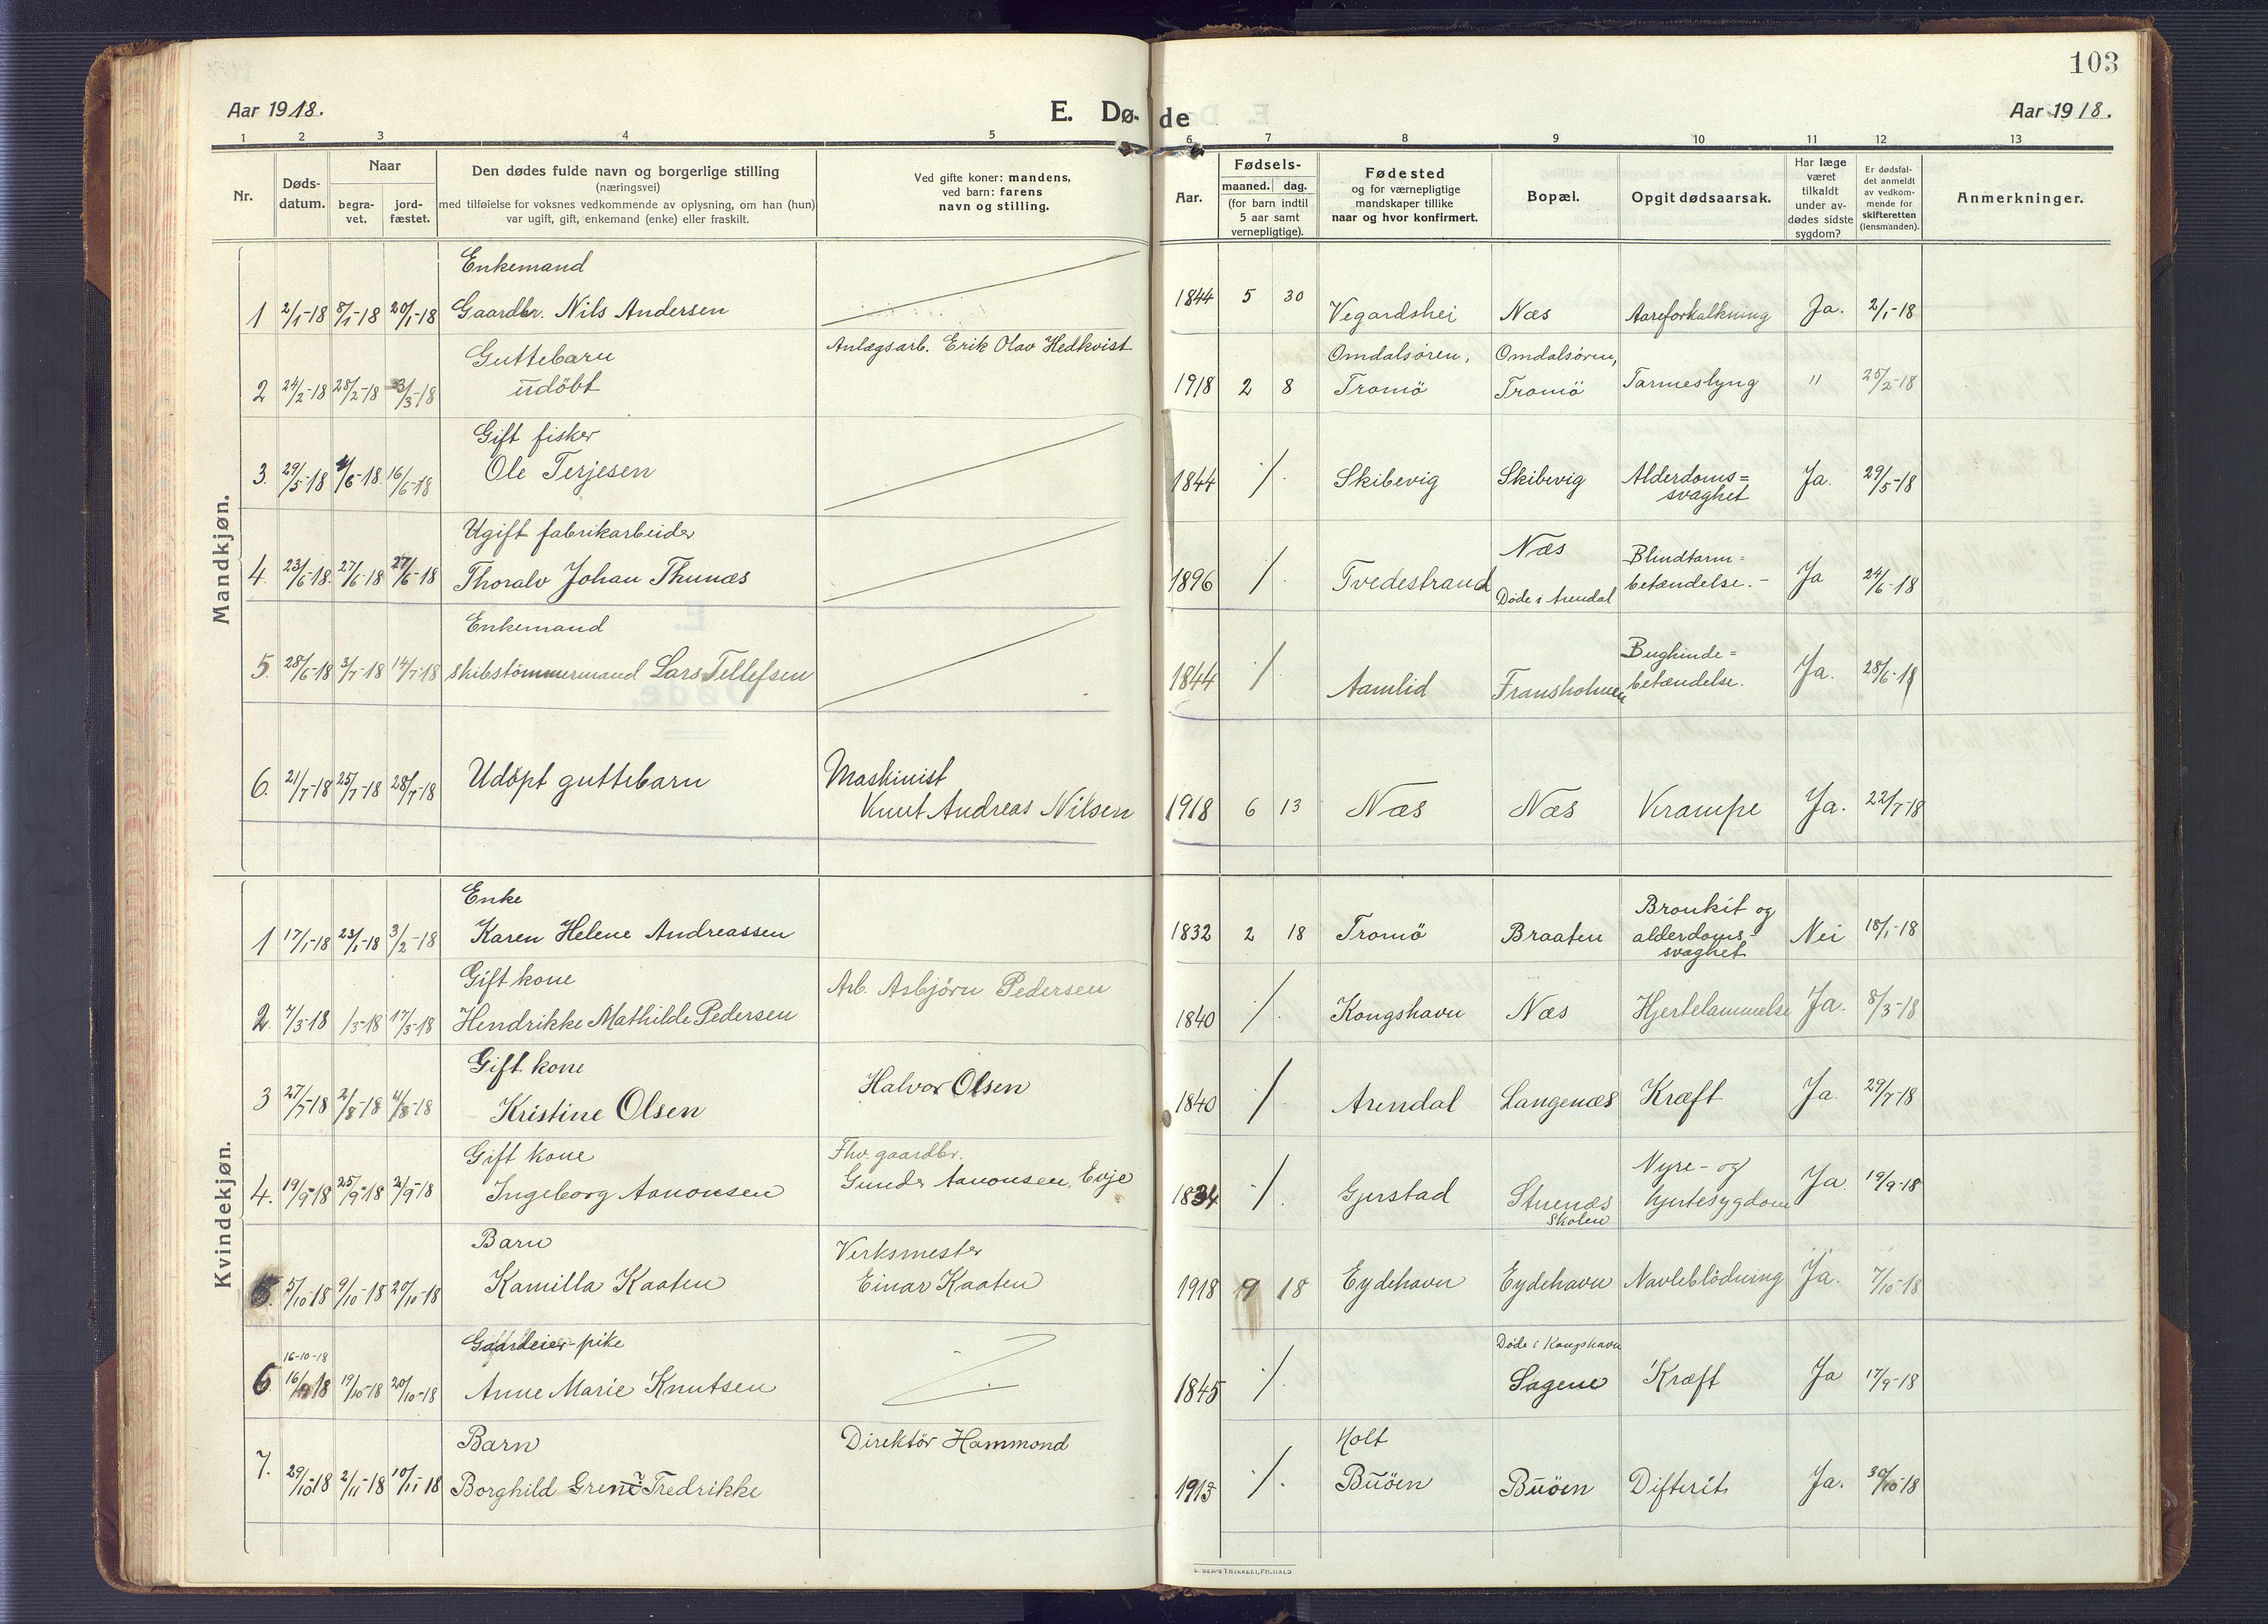 103
Aar 1918.
E. Dø-
de
Aar 1918.
1 2 3 4 5 6 7 8 9 10 11 12 13
Nr.
Døds-
datum.
Naar
begra-
vet.
jord-
fæstet.
Den dødes fulde navn og borgerlige stilling
(næringsvei)
med tilføielse for voksnes vedkommende av oplysning, om han (hun)
var ugift, gift, enkemand (enke) eller fraskilt.
Ved gifte koner: mandens,
ved barn: farens
navn og stilling.
Aar.
Fødsels-
maaned. dag.
(for barn indtil
5 aar samt
vernepligtige).
Fødested
og for værnepligtige
mandskaper tillike
naar og hvor konfirmert.
Bopæl.
Opgit dødsaarsak.
Har læge
været
tilkaldt
under av-
dødes sidste
sygdom?
Er dødsfal-
det anmeldt
av vedkom-
mende for
skifteretten
(lensmanden).
Anmerkninger.
Mandkjøn.
Enkemand
1 2/1-18 8/1-18 20/1-18 Gaardbr. Nils Andersen 1844 5 30 Vegardshei Næs Aareforkalkning Ja. 2/1-18
Guttebarn Anlægsarb. Erik Olav Hedkvist Omdalsøren, Omdalsøren,
2 24/2-18 28/2-18 3/3-18 udöbt 1918 2 8 Tromö Tromö Tarmeslyng " 25/2-18
Gift fisker
3. 29/5-18 4/6-18. 16/6-18 Ole Terjesen 1844 ·/· Skibevig Skibevig Alderdoms=
svaghet Ja. 29/5-18
Ugift fabrikarbeider Næs Blindtarm=
4. 23/6-18. 27/6-18 27/6-18 Thoralv Johan Thunæs 1896 ·/· Tvedestrand Døde i Arendal betændelse.- Ja 24/6-18
Enkemand Bughinde=
5. 28/6-18 3/7-18 14/7-18 skibstömmermand Lars Tellefsen 1844 ·/· Aamlid Fransholmen betændelse. Ja. 28/6-18
6. 21/7-18 25/7-18 28/7-18 Udöpt guttebarn Maskinist
Knut Andreas Nilsen 1918 6 13 Næs Næs Krampe Ja. 22/7-18
Kvindekjøn.
Enke Bronkit og
1 17/1-18 23/1-18 3/2-18 Karen Helene Andreassen 1832 2 18 Tromö Braaten alderdoms-
svaghet Nei 18/1-18
Gift kone Arb. Asbjörn Pedersen
2. 7/3-18 /3-18 17/3-18 Hendrikke Mathilde Pedersen 1840 ·/· Kongshavn Næs Hjertelammelse Ja. 8/3-18
Gift kone Halvor Olsen
3 27/7-18 2/8-18 4/8-18 Kristine Olsen 1840 ·/· Arendal Langenæs Kræft Ja. 29/7-18
Gift kone Fhv. gaardbr. Nyre- og
4. 19/9-18 25/9-18 2/9-18 Ingeborg Aanonsen Gunder Aanonsen, Evje 1834 ·/· Gjerstad Stuenæs
skolen hjertesygdom Ja 19/9-18
Barn Verksmester
5. 5/10-18 9/10-18 20/10-18 Kamilla Kaaten Einar Kaaten 1918 9 18 Eydehavn Eydehavn Navleblödning Ja. 7/10-18
16-10-18 Gaardeier-pike Døde i Kongshavn
6. 16/ 18 19/10-18 20/10-18 Anne Marie Knutsen 1845 ·/· Sagene Kræft Ja 17/9-18
Barn Direktör Hammond Holt
7. 29/10-18 2/11-18 10/11 18 Borghild Grene Fredrikke 1913 ·/· Buöen Buöen Difterit Ja. 30/10-18